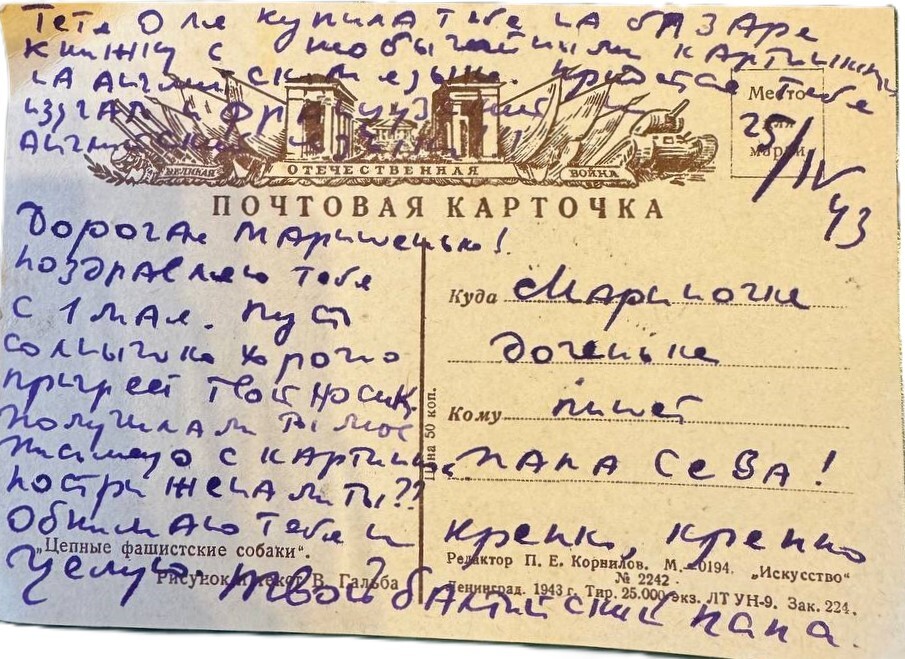 Тетя Оля купила тебе на базаре
книжку с необычайными картинками
на английском языке. Придется тебе
изучать и французский и
английский языки!!
Место
для
марки
25/IV
43
ВЕЛИКАЯ ОТЕЧЕСТВЕННАЯ ВОЙНА
ПОЧТОВАЯ КАРТОЧКА
Дорогая Маришенька!
поздравляю тебя
с 1 мая. Пусть
солнышко хорошо
пригреет твой носик.
Получила ли ты мое
письмо с картинками
пострижена ли ты??
Обнимаю тебя и крепко, крепко
целую. Твой балтийский папа.
Куда Мариночке
доченьке
Кому пишет
папа Сева!
Цена 50 коп.
„Цепные фашистские собаки".
Рисунок и текст В. Гальба
Редактор П. Е. Корнилов. М—0194. „Искусство"
№ 2242
Ленинград. 1943 г. Тир. 25.000 экз. ЛТ УН-9. Зак. 224.